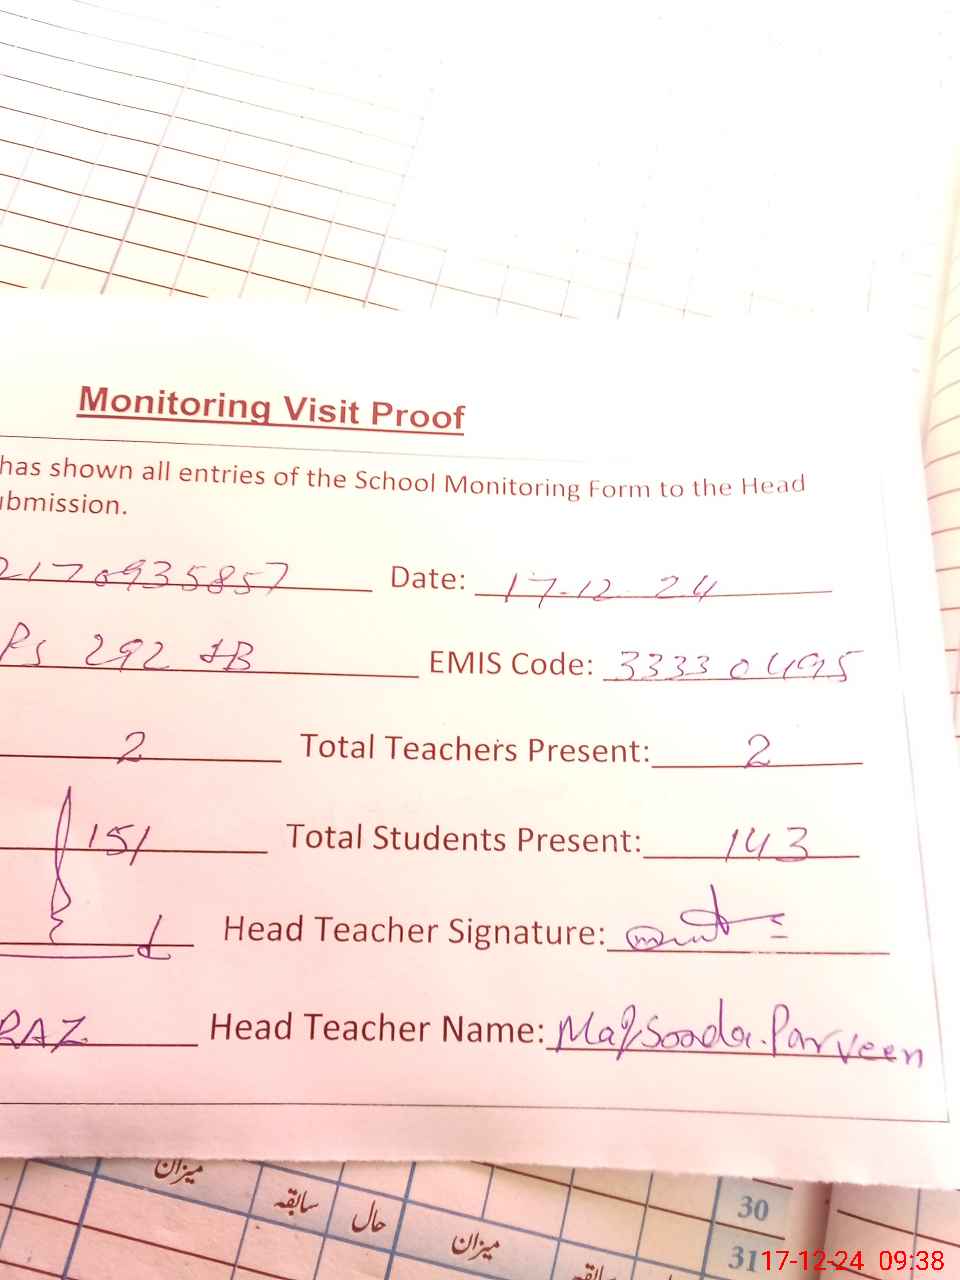 Monitoring Visit Proof
has shown all entries of the School Monitoring Form to the Head
ubmission.
2170935857 Date: 17-12-24
PS 292 JB EMIS Code: 33330495
2 Total Teachers Present: 2
151 Total Students Present: 143
Head Teacher Signature:
RAZ Head Teacher Name: Maqsooda Parveen
میزان
سابقہ
حال
میزان
سابقہ
30
31
17-12-24 09:38